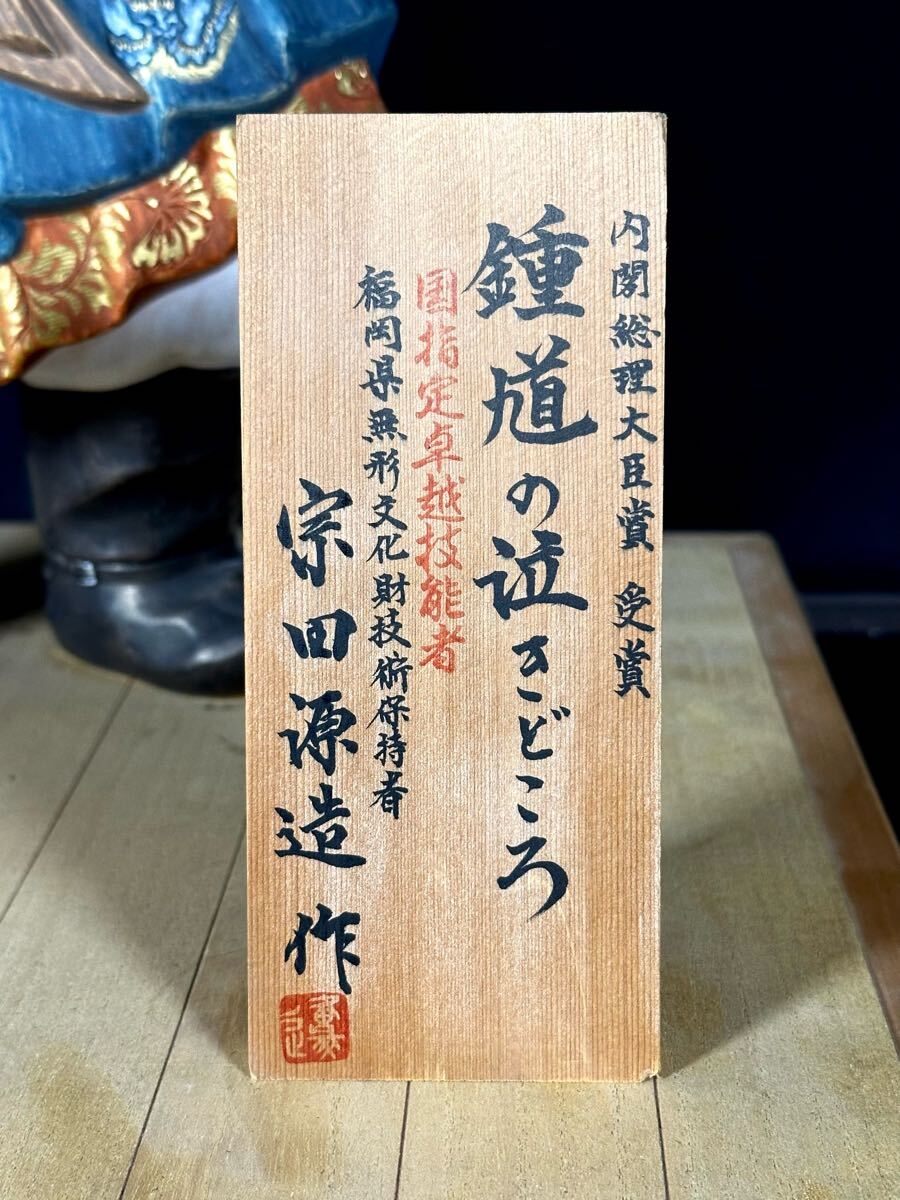 内閣総理大臣賞 受賞
鍾馗の泣きどころ
国指定卓越技能者
福岡県無形文化財技術保持者
宗田源造 作